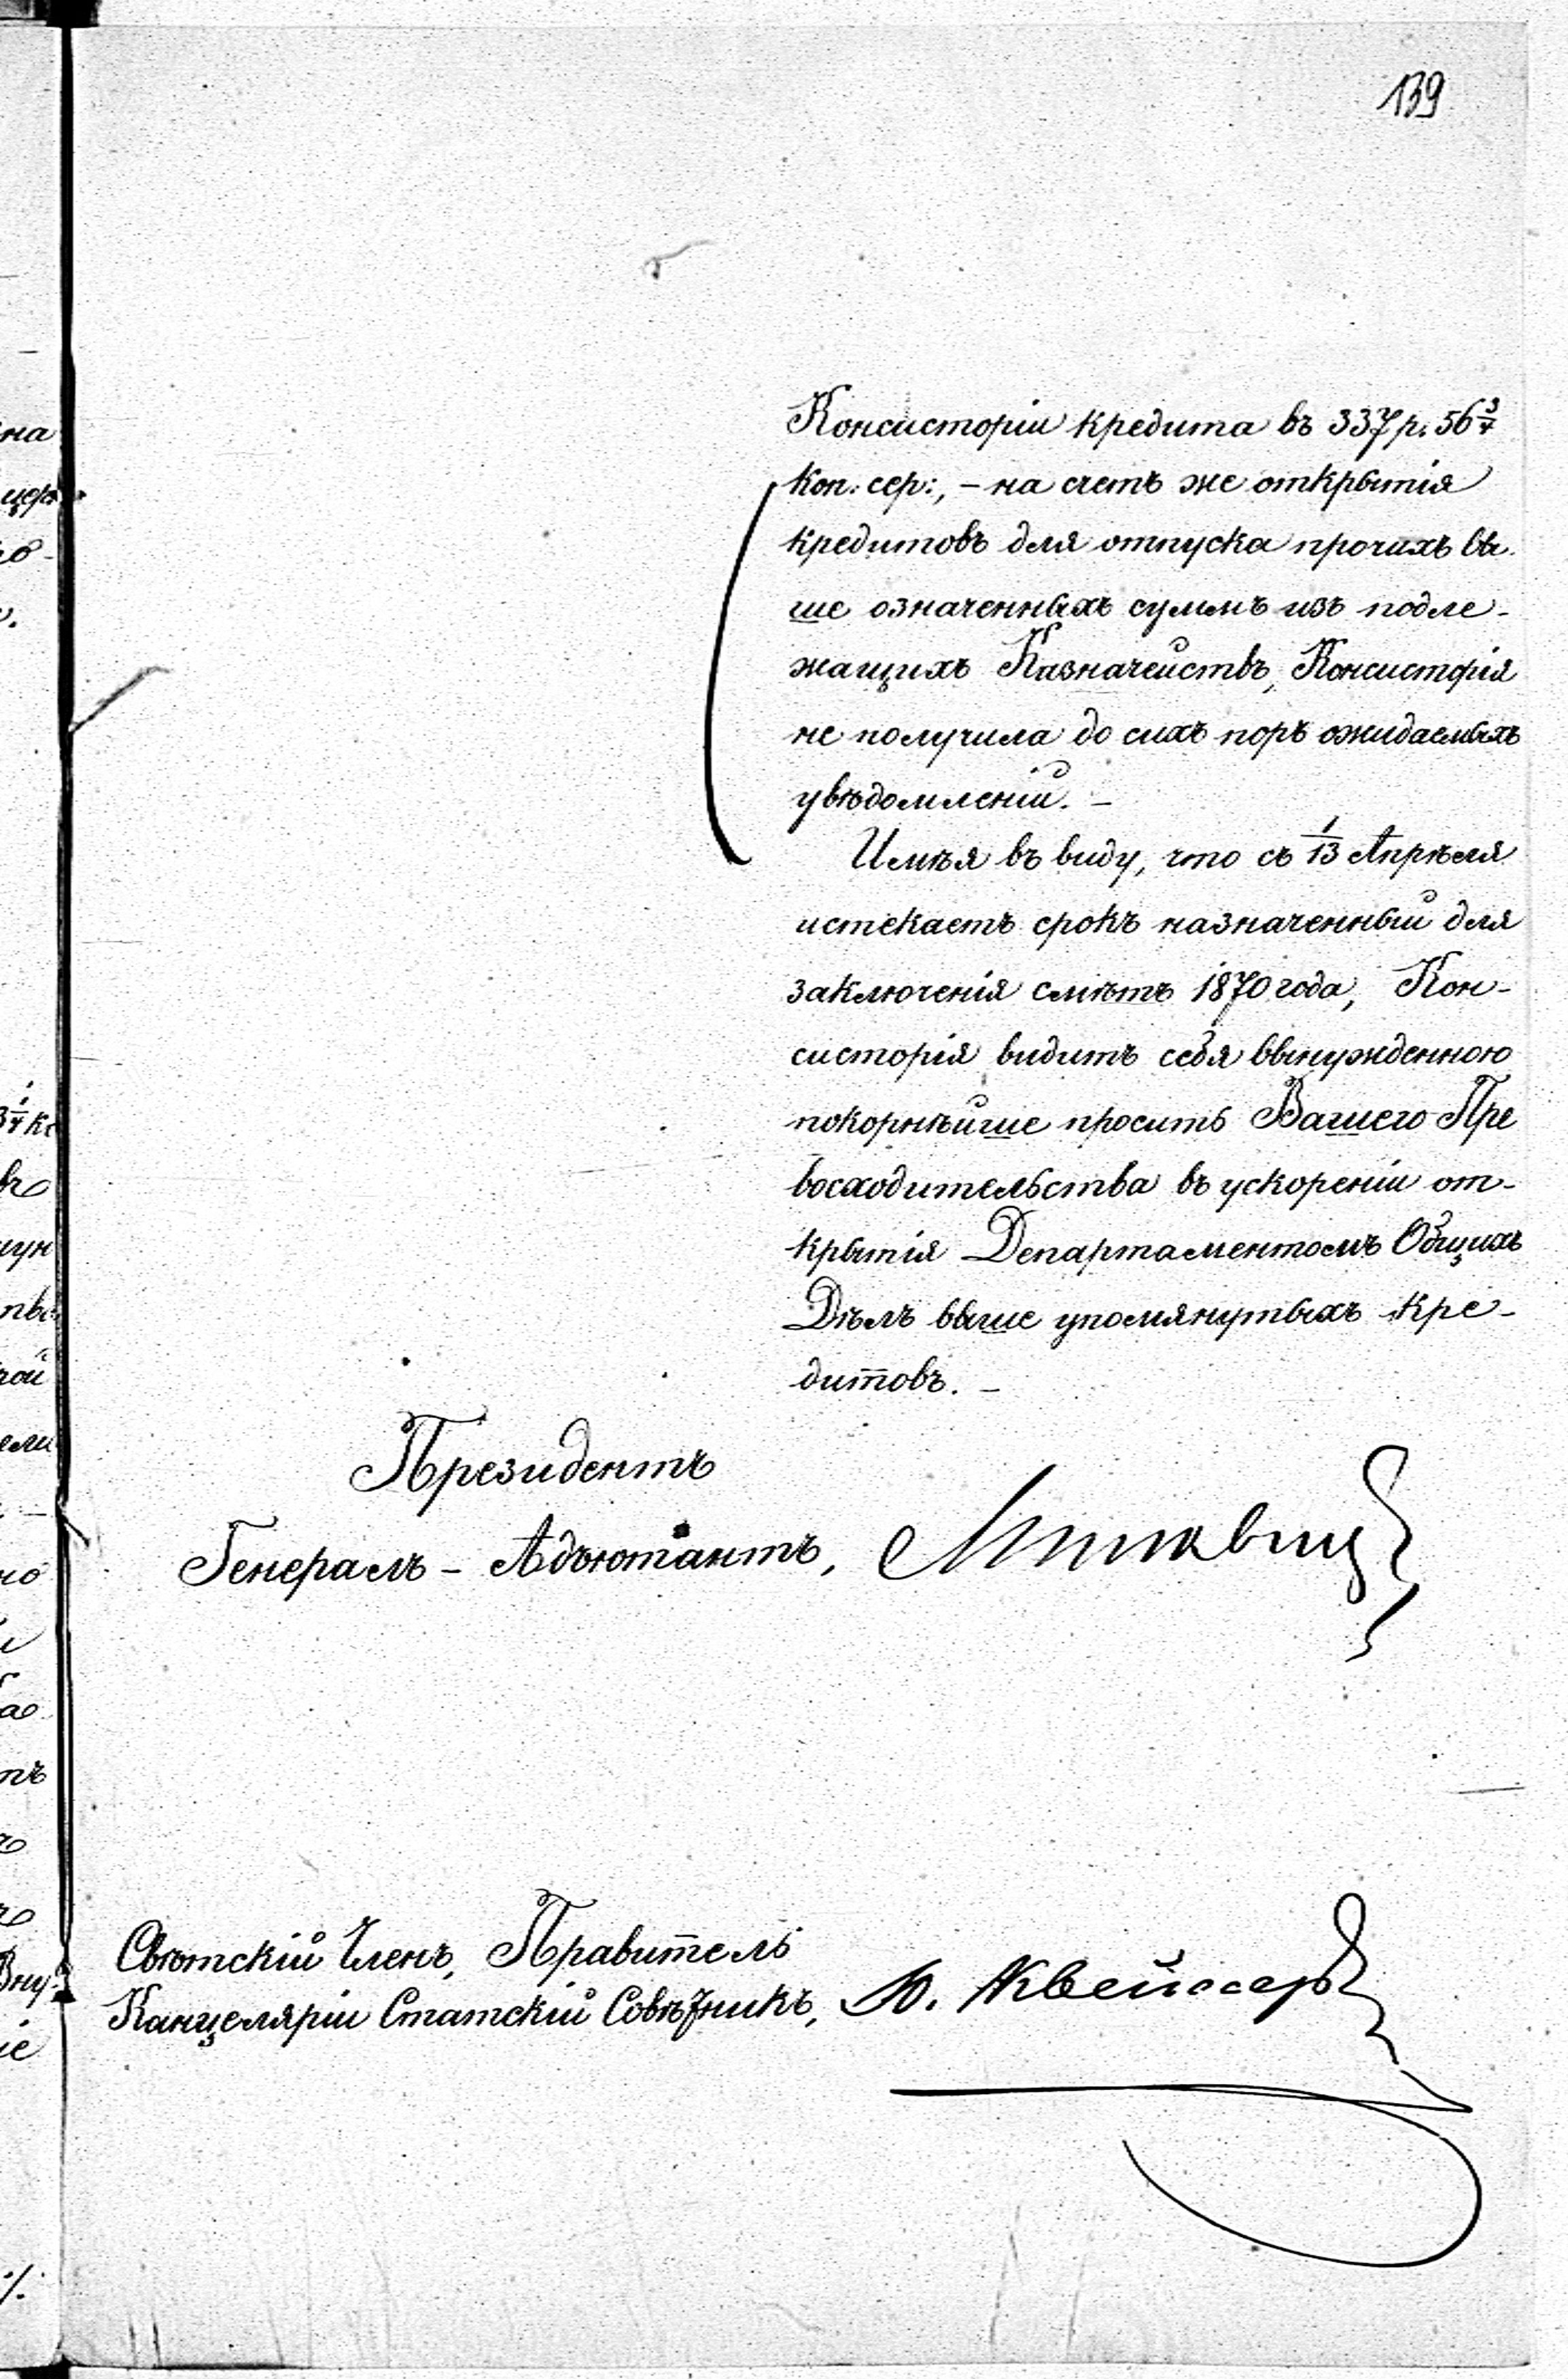 139
Консисторіи кредита въ 337 р. 56 3/4
коп: сер:, – на счетъ же открытія
кредитовъ для отпуска прочихъ вы-
ше означенныхъ суммъ изъ подле-
жащихъ Казначействъ, Консисторія
не получила до сихъ поръ ожидаемыхъ
увѣдомленій. –
Имѣя въ виду, что съ 1/13 Апрѣля
истекаетъ срокъ назначенный для
заключенія смѣтъ 1870 года, Кон-
систорія видитъ себя вынужденною
покорнѣйше просить Вашего Пре
восходительства въ ускореніи от-
крытія Департаментомъ Общихъ
Дѣлъ выше упомянутыхъ кре-
дитовъ. –
Президентъ
Генералъ – Адъютантъ,
Свѣтскій Членъ, Правитель
Канцеляріи Статскій Совѣтникъ, Ю.